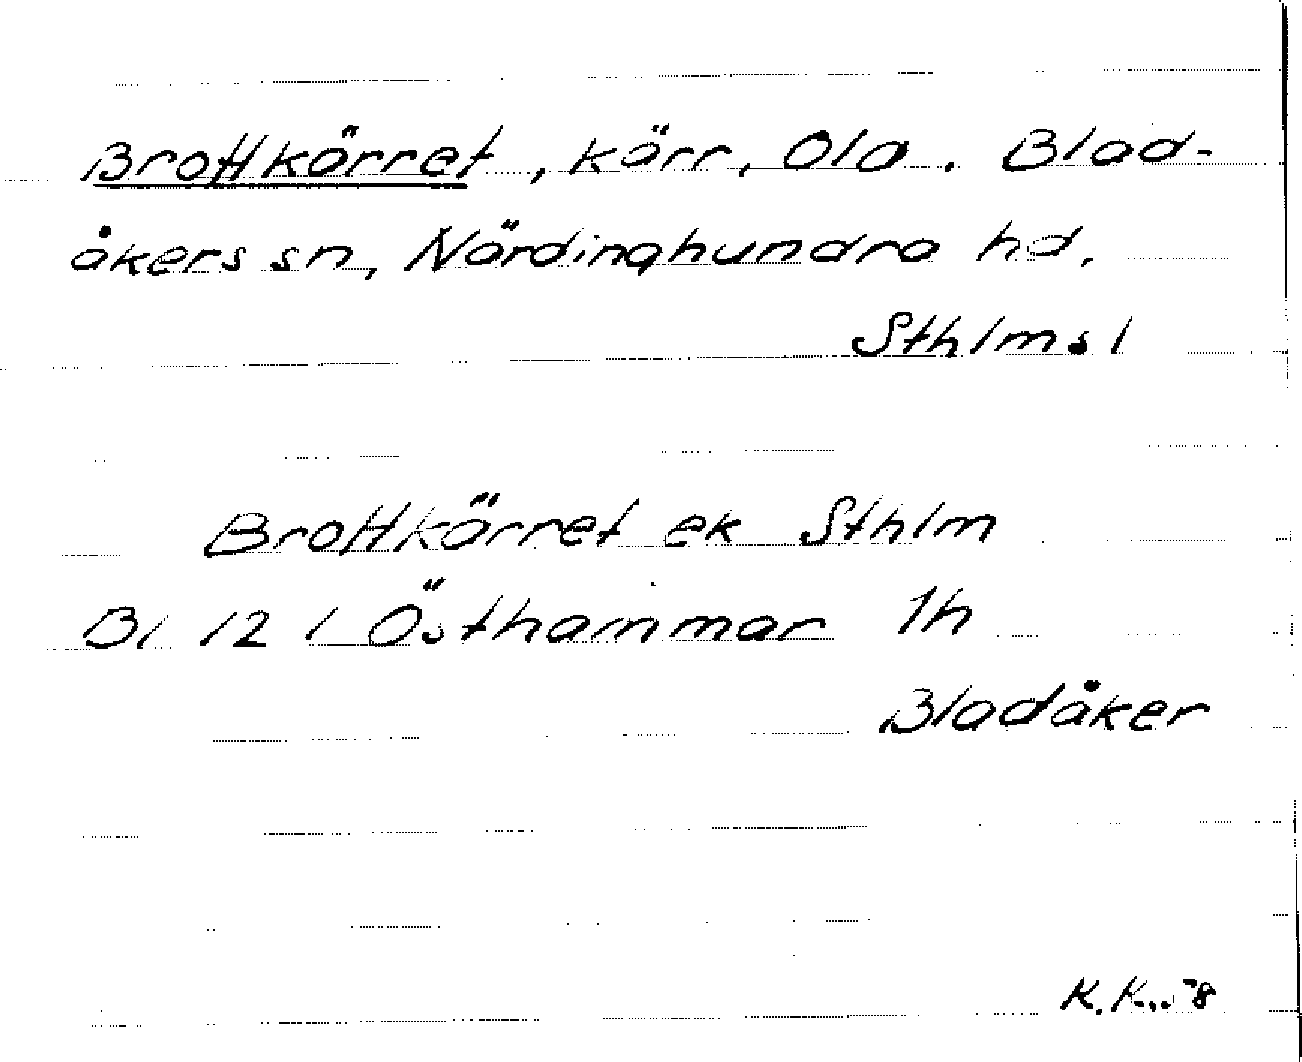 Brottkärret, kärr, Ola. Blad-
åkers sn, Närdinghundra hd.
Sthlms l
Brottkärret ek Sthlm
Bl 12 l Östhammar 1h
Bladåker
K.K.